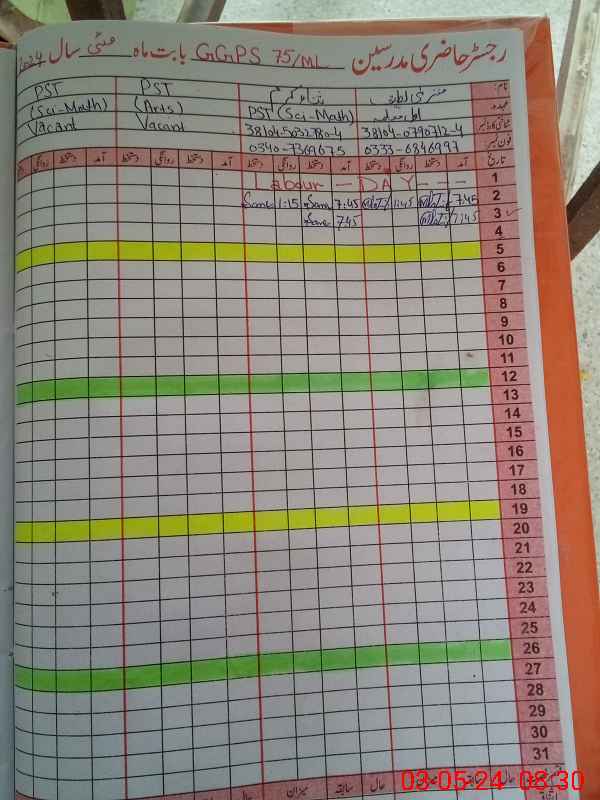 رجسٹر حاضری مدرسین GGPS 75/ML بابت ماہ مئی سال 2024
نام: PST PST
عہدہ PST (Sci-Math) (Arts) (Sci-Math)
شناختی کارڈ نمبر 38104-0790712-4 38104-5032780-4 Vacant Vacant
فون نمبر 0333-6846997 0340-7369675
تاریخ آمد دستخط روانگی دستخط آمد دستخط روانگی دستخط آمد دستخط روانگی دستخط آمد دستخط روانگی
1 Labour - DAY - - -
2 7:45 1:45 7:45 1:15
3 7:45 7:45
4
5
6
7
8
9
10
11
12
13
14
15
16
17
18
19
20
21
22
23
24
25
26
27
28
29
30
31
حال سابقہ میزان حال سابقہ
03-05-24 08:30